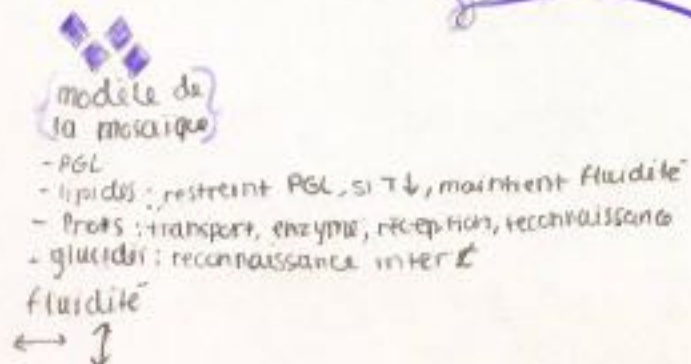 modèle de
la mosaïque
- PGL
- lipides : restreint PGL, si T↓, maintient fluidité
- Prots : transport, enzyme, réception, reconnaissance
- glucides : reconnaissance inter ¢
fluidité
↔ ↕